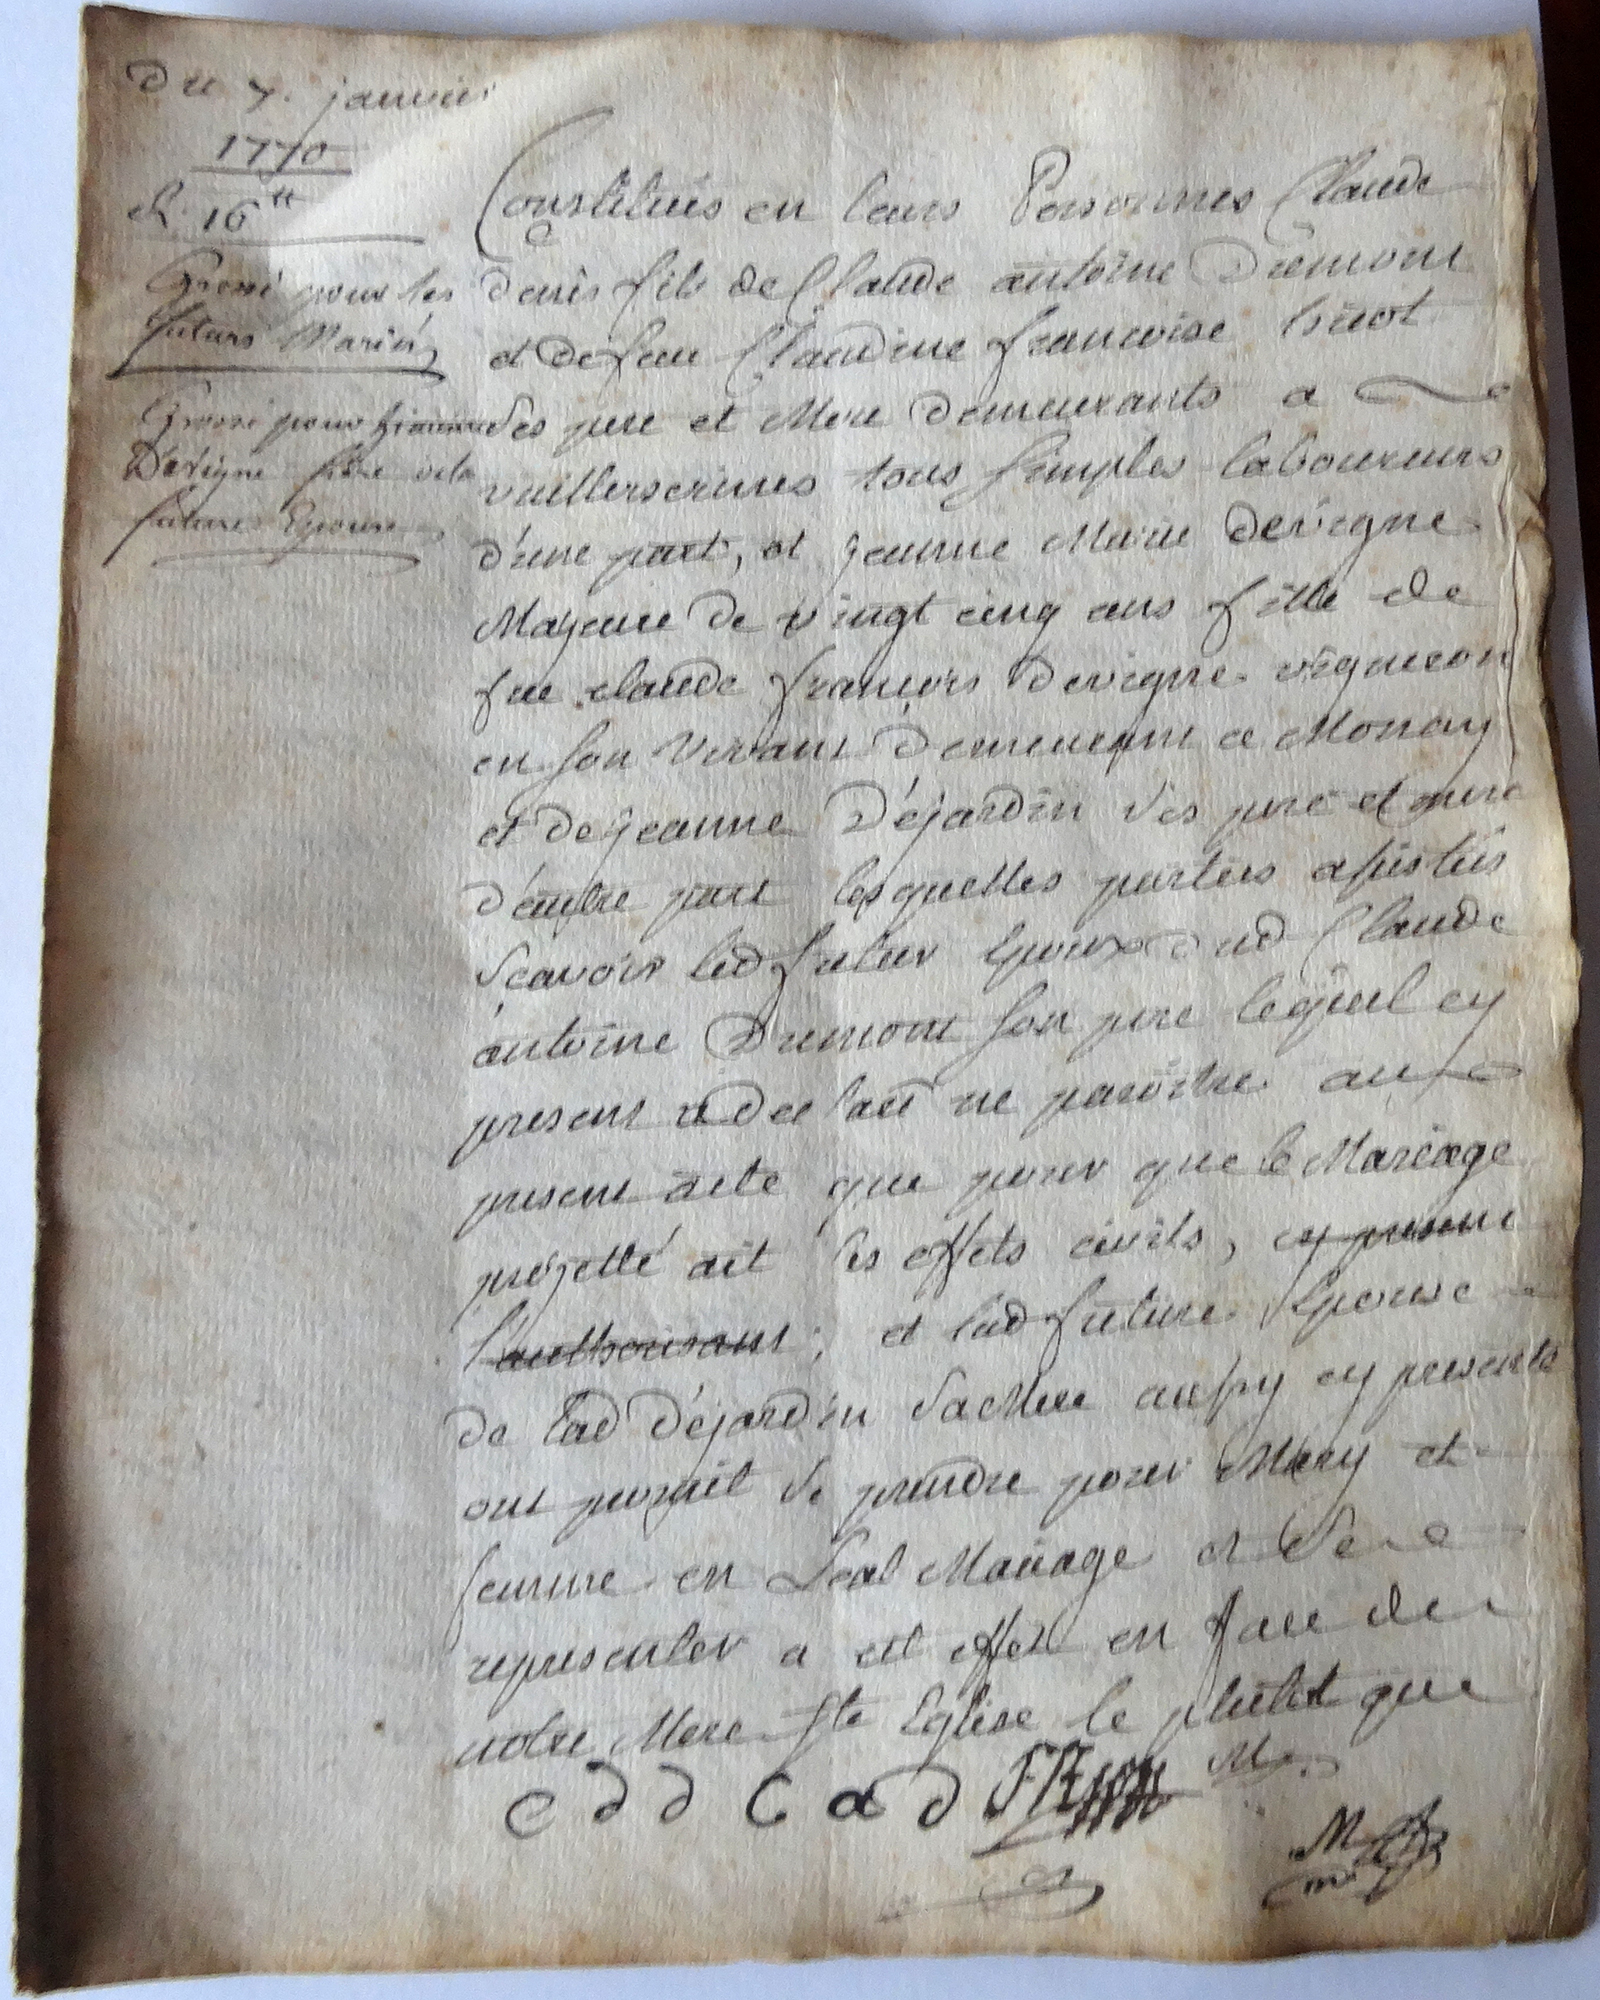 Du 7. janvier
1770
R. 16 ᵗᵗ
Grossé pour les
futurs Mariés
Grossé pour
Devigne frère de la
future Epouse
Constitués en leurs Personnes Claude
denis fils de Claude antoine Dumont
et de feue Claudine francoise
ses pere et Mere demeurants a
tous simples laboureurs
d'une part, et jeanne Marie devigne
Majeure de vingt cinq ans fille de
fue claude francois devigne vigneron
en son vivant demeurant a Monay
et de jeanne Déjardin ses pere et mere
d'autre part lesquelles parties assistés
scavoir led futur Epoux dud Claude
antoine Dumont son pere lequel cy
present a declaré ne paroitre au
present acte que pour que le Mariage
projetté ait les effets civils, cy present
l'authorisant ; et lad future Epouse
de lad Déjardin sa Mere aussy cy presente
ont promit se prendre pour Mary et
femme en Leal Mariage et se
representer a cet effet en face de
notre Mere Ste Eglise le plutot que
c d d C a D
M